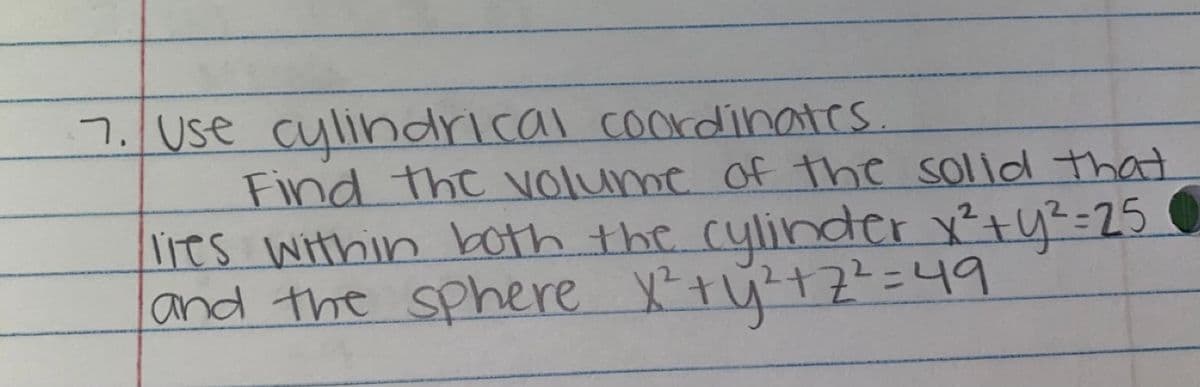 7. Use cylindrical coordinates.
Find the volume of the solid that
lies within both the cylinder x²+y²=25
and the sphere x²+y²+z²=49